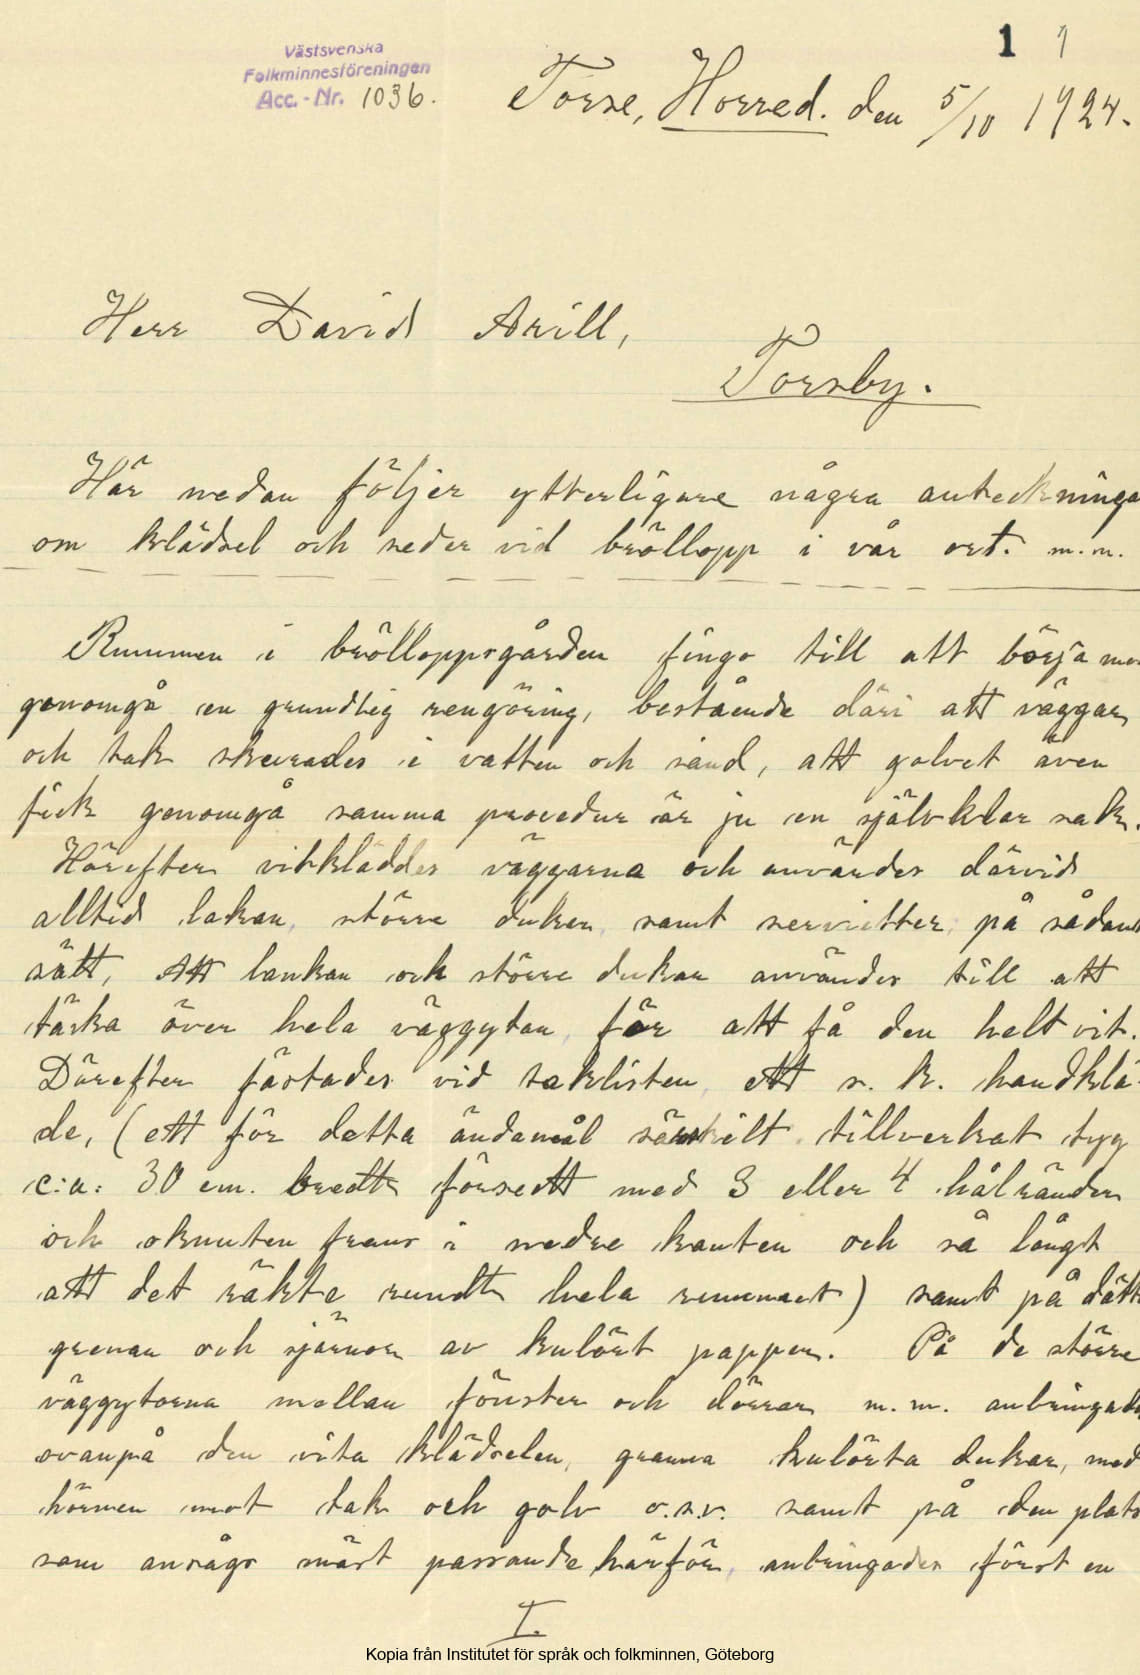 1 1
Västsvenska
Folkminnesföreningen
Acc.-Nr. 1036.
Torse, Horred. den 5/10 1924.
Herr David Arill,
Torsby.
Här nedan följer ytterligare några anteckninga
om klädsel och seder vid bröllopp i vår ort. m.m.
Rummen i brölloppsgården fingo till att börja me
genomgå en grundlig rengöring, bestående däri att väggar
och tak skurades i vatten och sand, att golvet även
fick genomgå samma procedur är ju en självklar sak.
Härefter vitkläddes väggarna och användes därvid
alltid lakan, större dukar, samt servietter, på sådant
sätt, att lankan och större dukar användes till att
täcka över hela väggytan, för att få den helt vit.
Därefter fästades vid taklisten, ett s. k. handklä-
de, (ett för detta ändamål särskilt tillverkat tyg
c:a: 30 cm. bredt försedt med 3 eller 4 hålränder
och oknuten frans i nedre kanten och så långt
att det räkte rundt hela rummet) samt på dätt
grenar och sjärnor av kulört papper. På de större
väggytorna mellan fönster och dörrar m.m. anbringade
ovanpå den vita klädselen, granna kulörta dukar, med
hörnen mot tak och golv o.s.v. samt på den plats
som ansågs mäst passande härför, anbringades först en
I.
Kopia från Institutet för språk och folkminnen, Göteborg